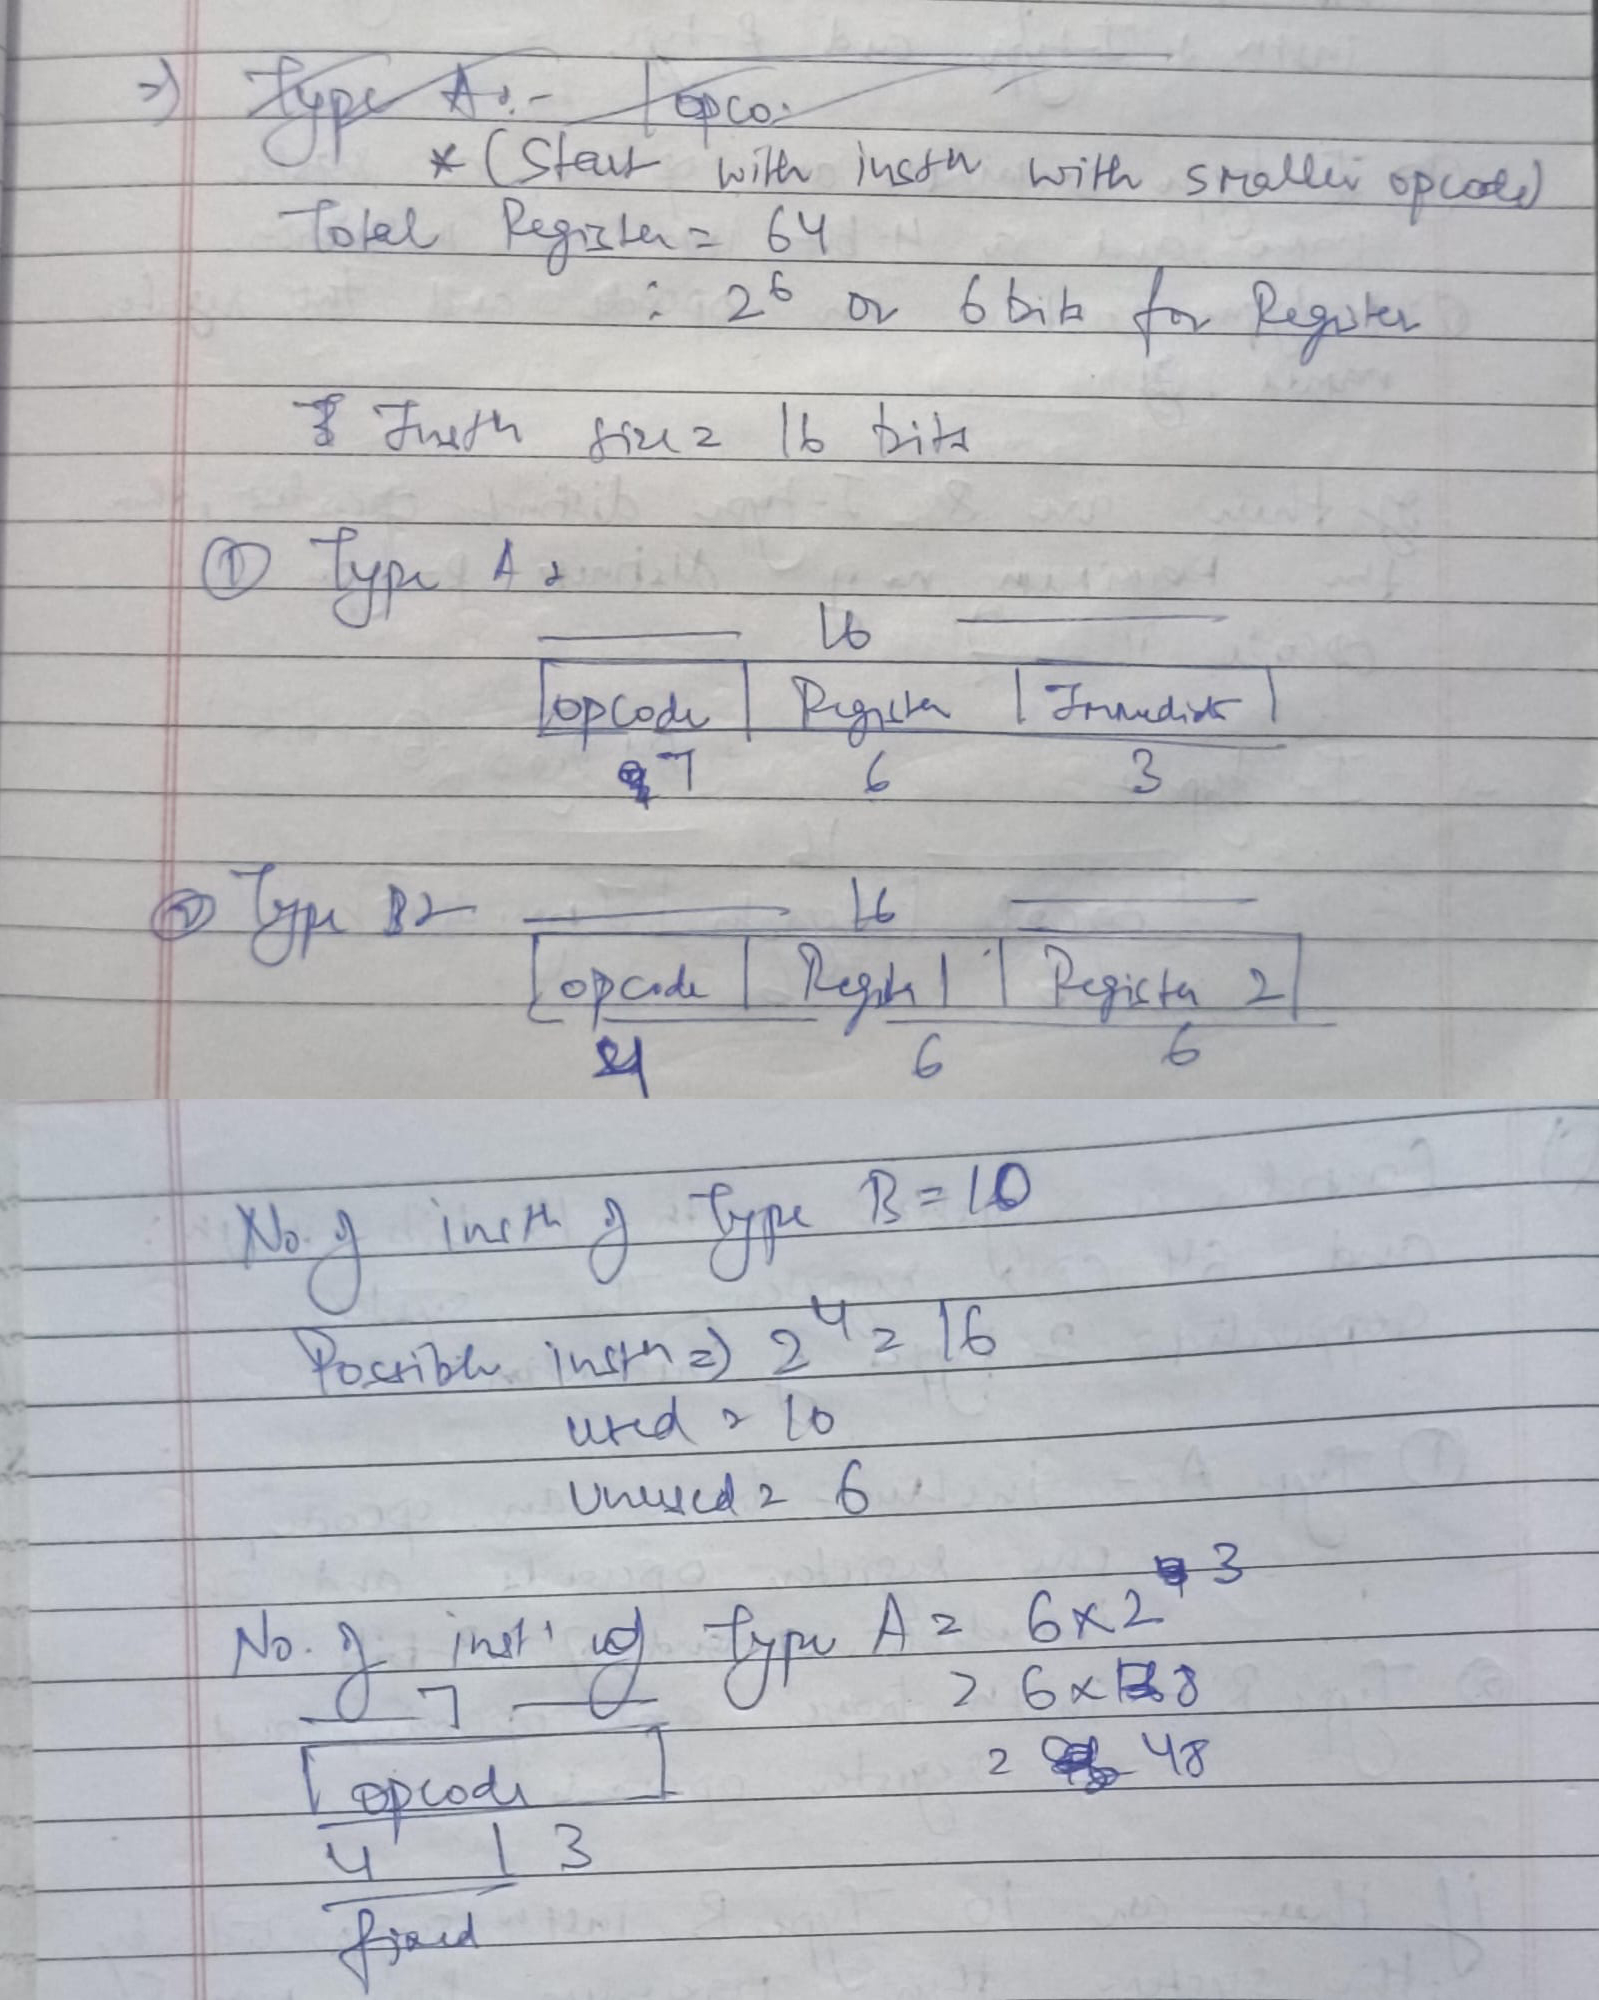 => Type A :- | opco.
* (Start with instn with smaller opcode)
Total Register = 64
∴ 2^6 or 6 bits for Register
Instn size = 16 bits
① Type A :
16
opcode | Register | Immediate
7 6 3
② Type B :-
16
opcode | Register 1 | Register 2
4 6 6
No. of instn of Type B = 10
Possible instn => 2^4 = 16
used = 10
unused = 6
No. of instn of Type A = 6 x 2^3
7 = 6 x 8
opcode = 48
4 | 3
fixed